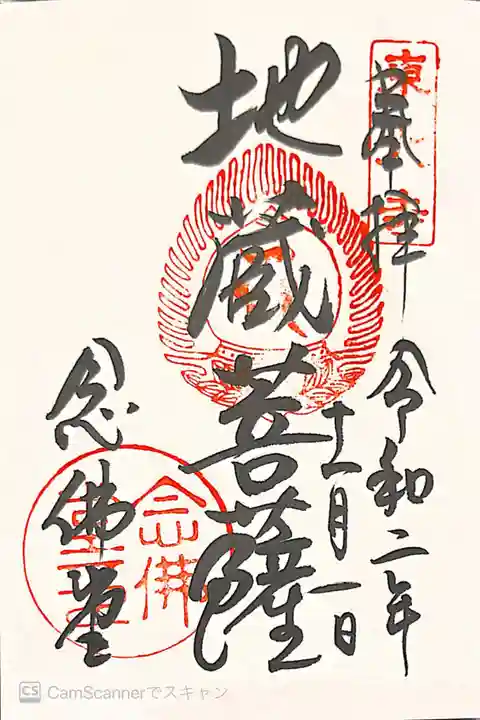 奉拝
令和二年
十一月一日
地蔵菩薩
念佛堂
東大寺
念佛
CS CamScannerでスキャン